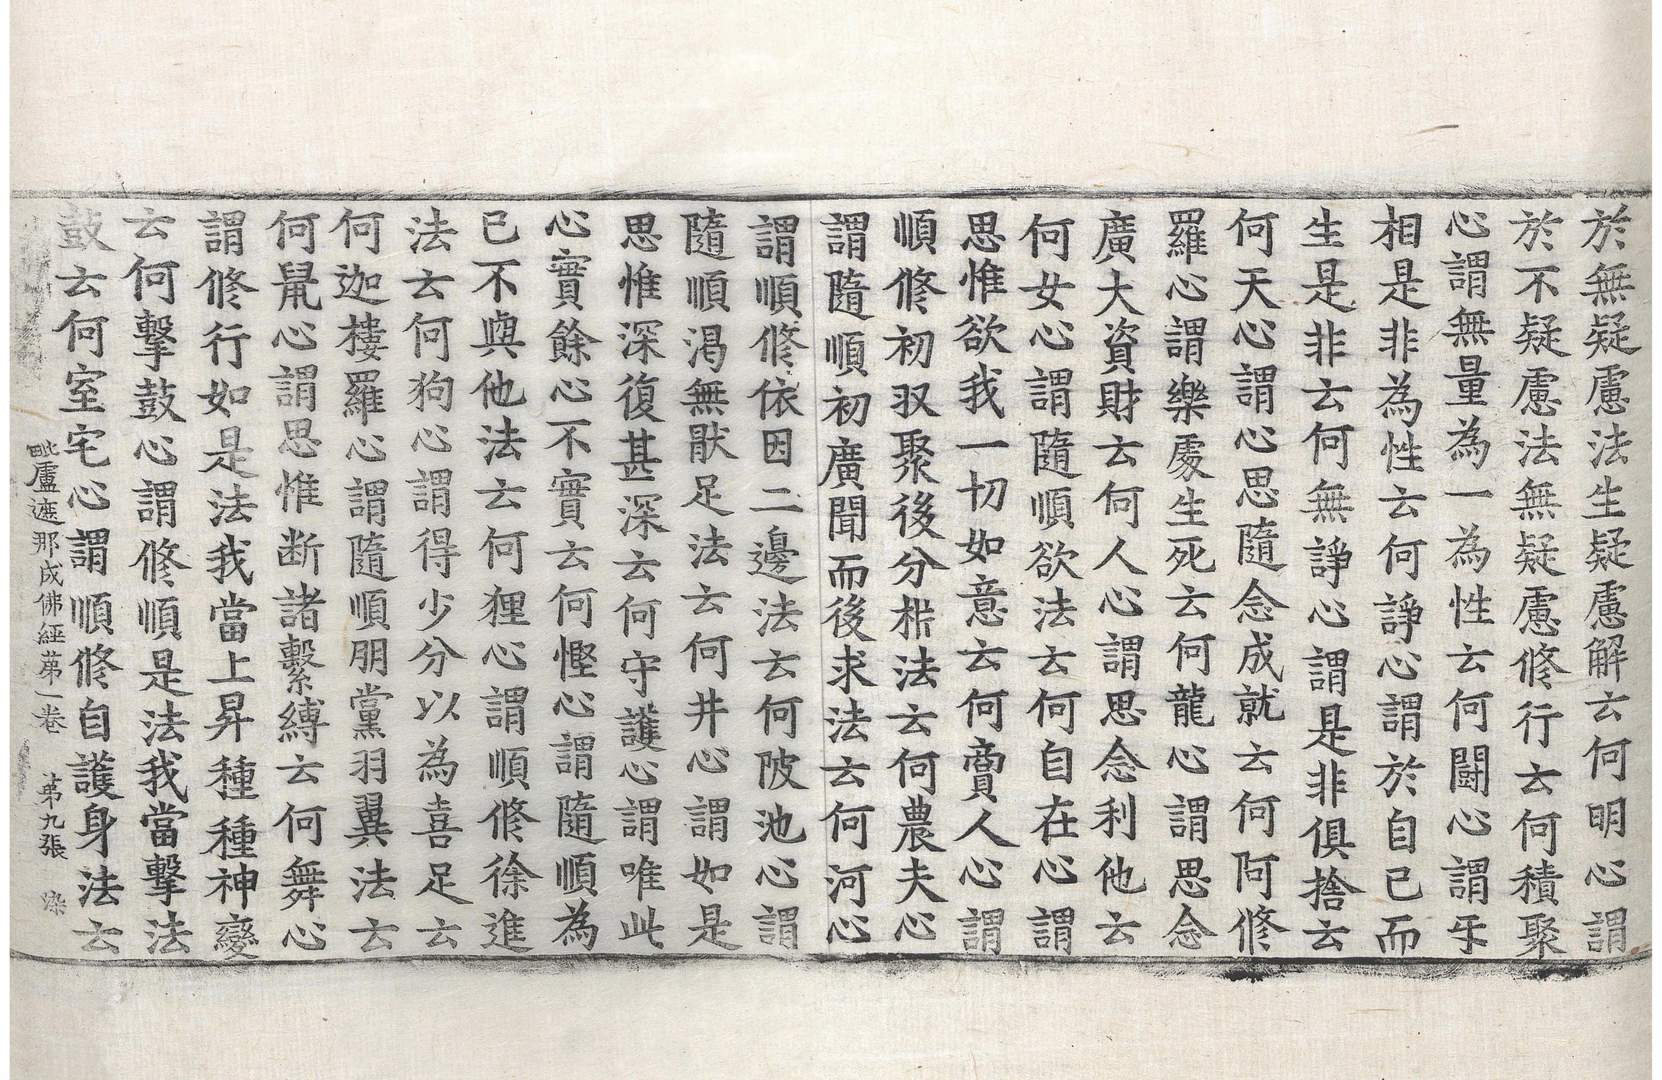 於無疑慮法生疑慮解云何明心謂
於不疑慮法無疑慮修行云何積聚
心謂無量為一為性云何鬪心謂㸦
相是非為性云何諍心謂於自己而
生是非云何無諍心謂是非俱捨云
何天心謂心思隨念成就云何阿修
羅心謂樂處生死云何龍心謂思念
廣大資財云何人心謂思念利他云
何女心謂隨順欲法云何自在心謂
思惟欲我一切如意云何𧶜人心謂
順修初収聚後分析法云何農夫心
謂隨順初廣聞而後求法云何河心
謂順修依因二邊法云何陂池心謂
隨順渴無猒足法云何井心謂如是
思惟深復甚深云何守護心謂唯此
心實餘心不實云何慳心謂隨順為
己不與他法云何狸心謂順修徐進
法云何狗心謂得少分以為喜足云
何迦樓羅心謂隨順朋黨羽翼法云
何鼠心謂思惟断諸繫縛云何舞心
謂修行如是法我當上昇種種神變
云何擊鼓心謂修順是法我當擊法
鼓云何室宅心謂順修自護身法云
毗盧遮那成佛經苐一卷 苐九張 染